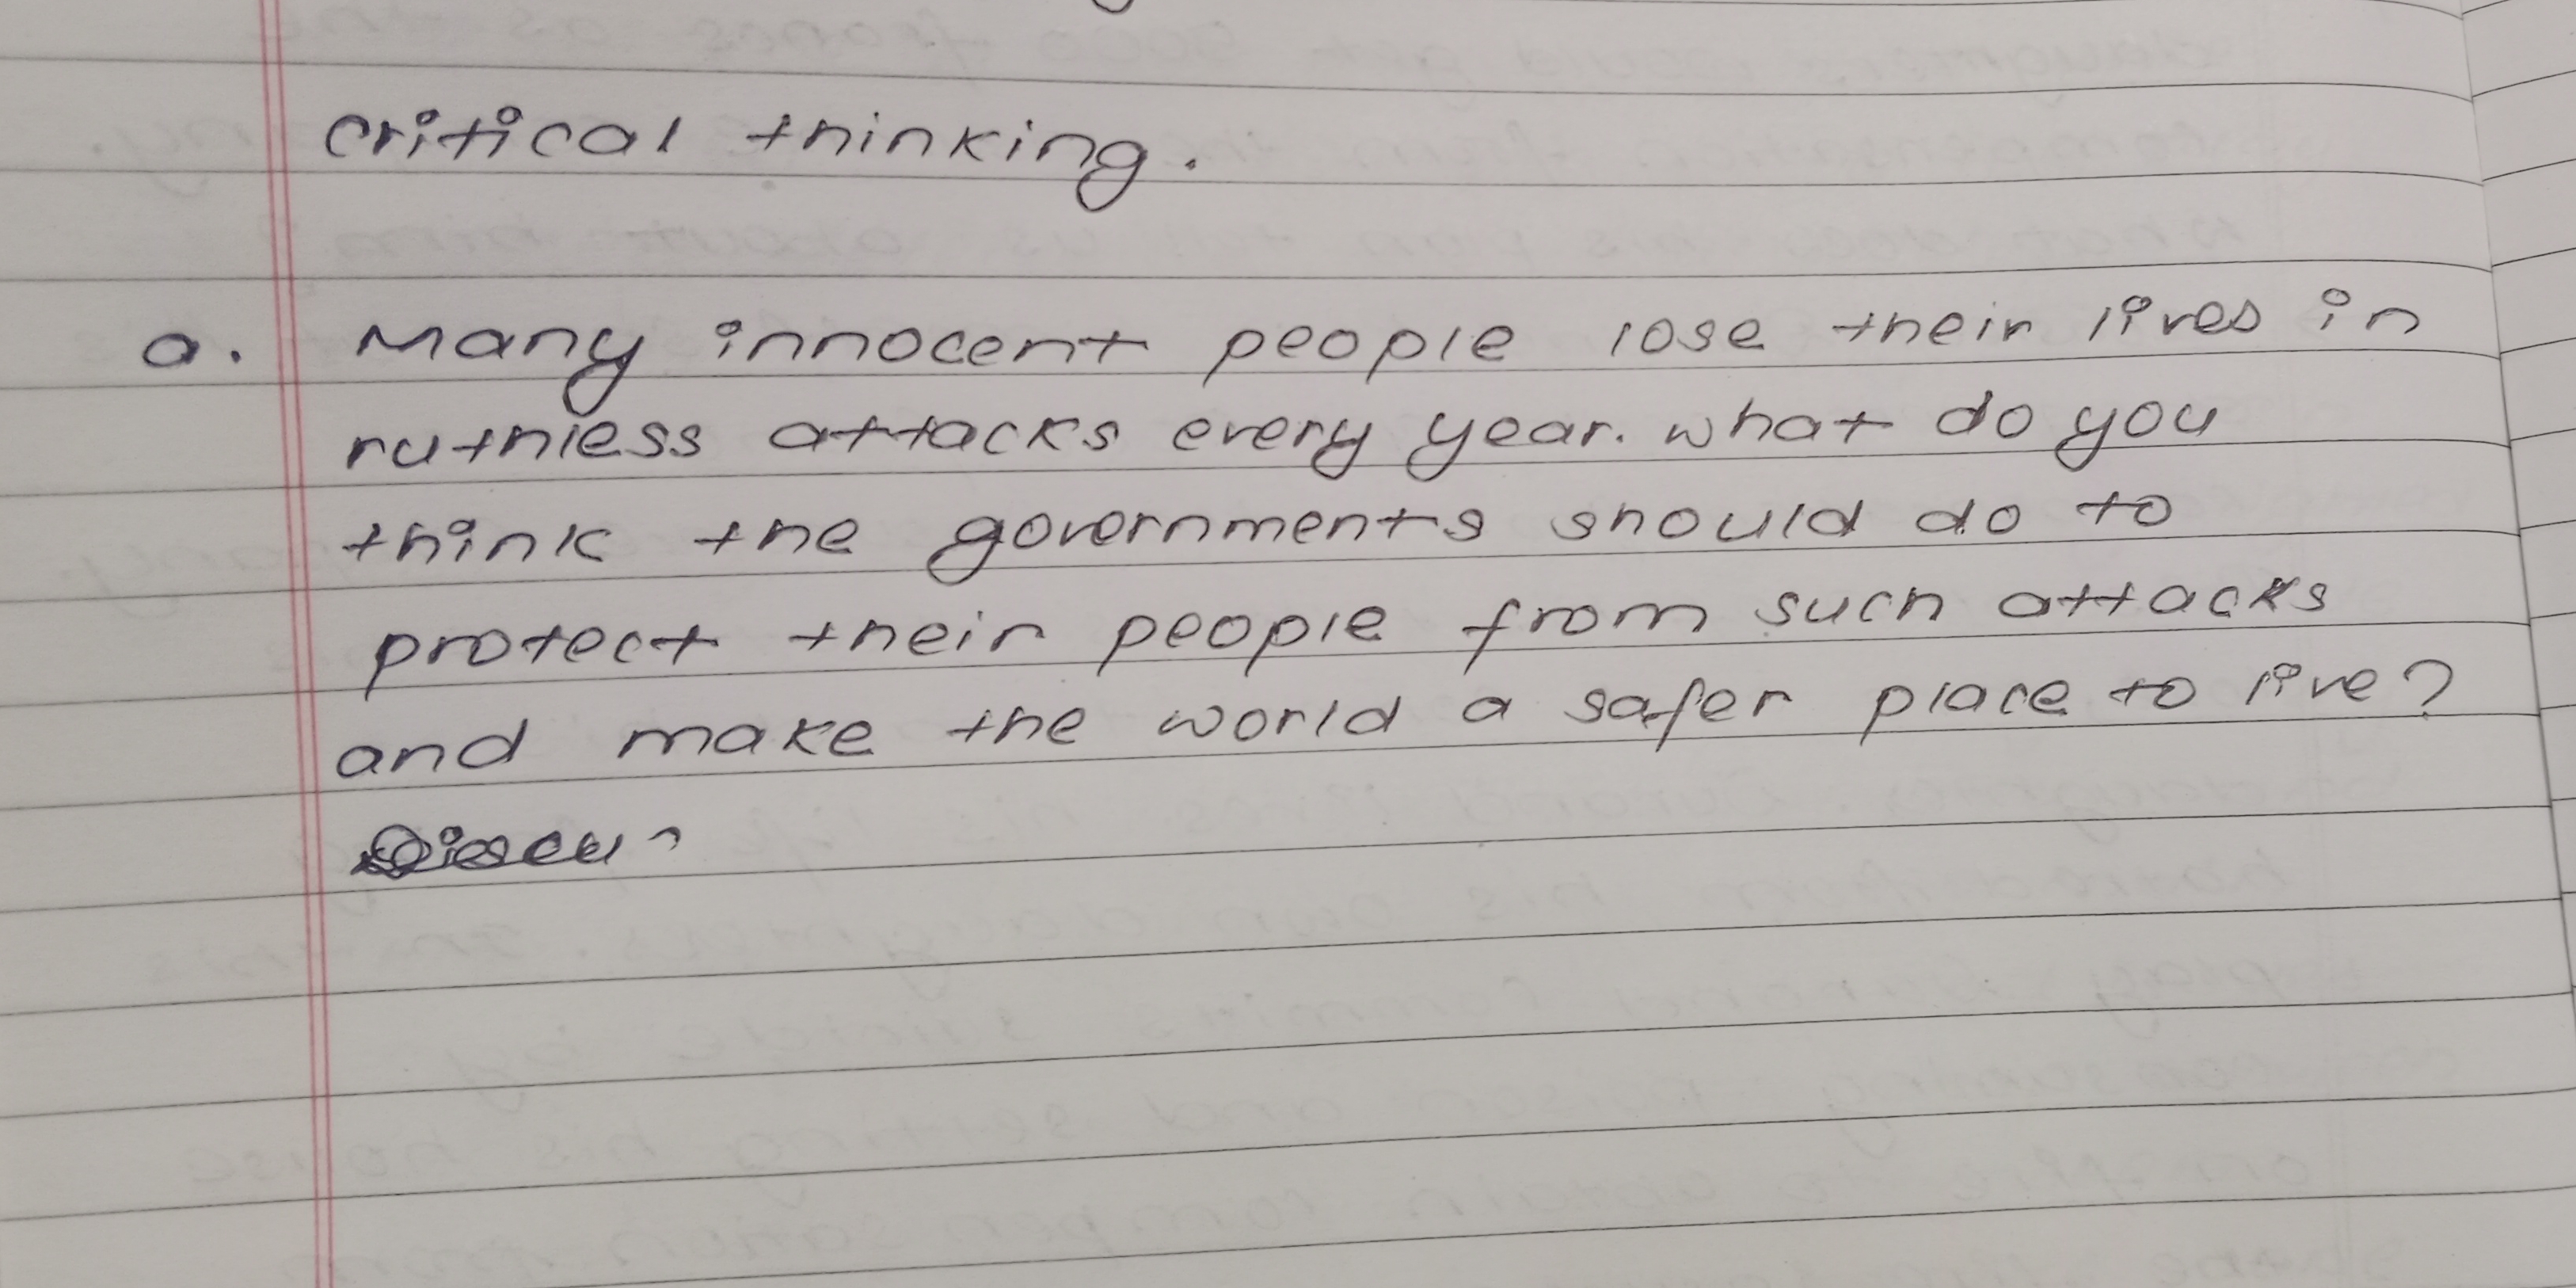 critical thinking.
a. Many innocent people lose their lives in
ruthless attacks every year. what do you
think the governments should do to
protect their people from such attacks
and make the world a safer place to live?